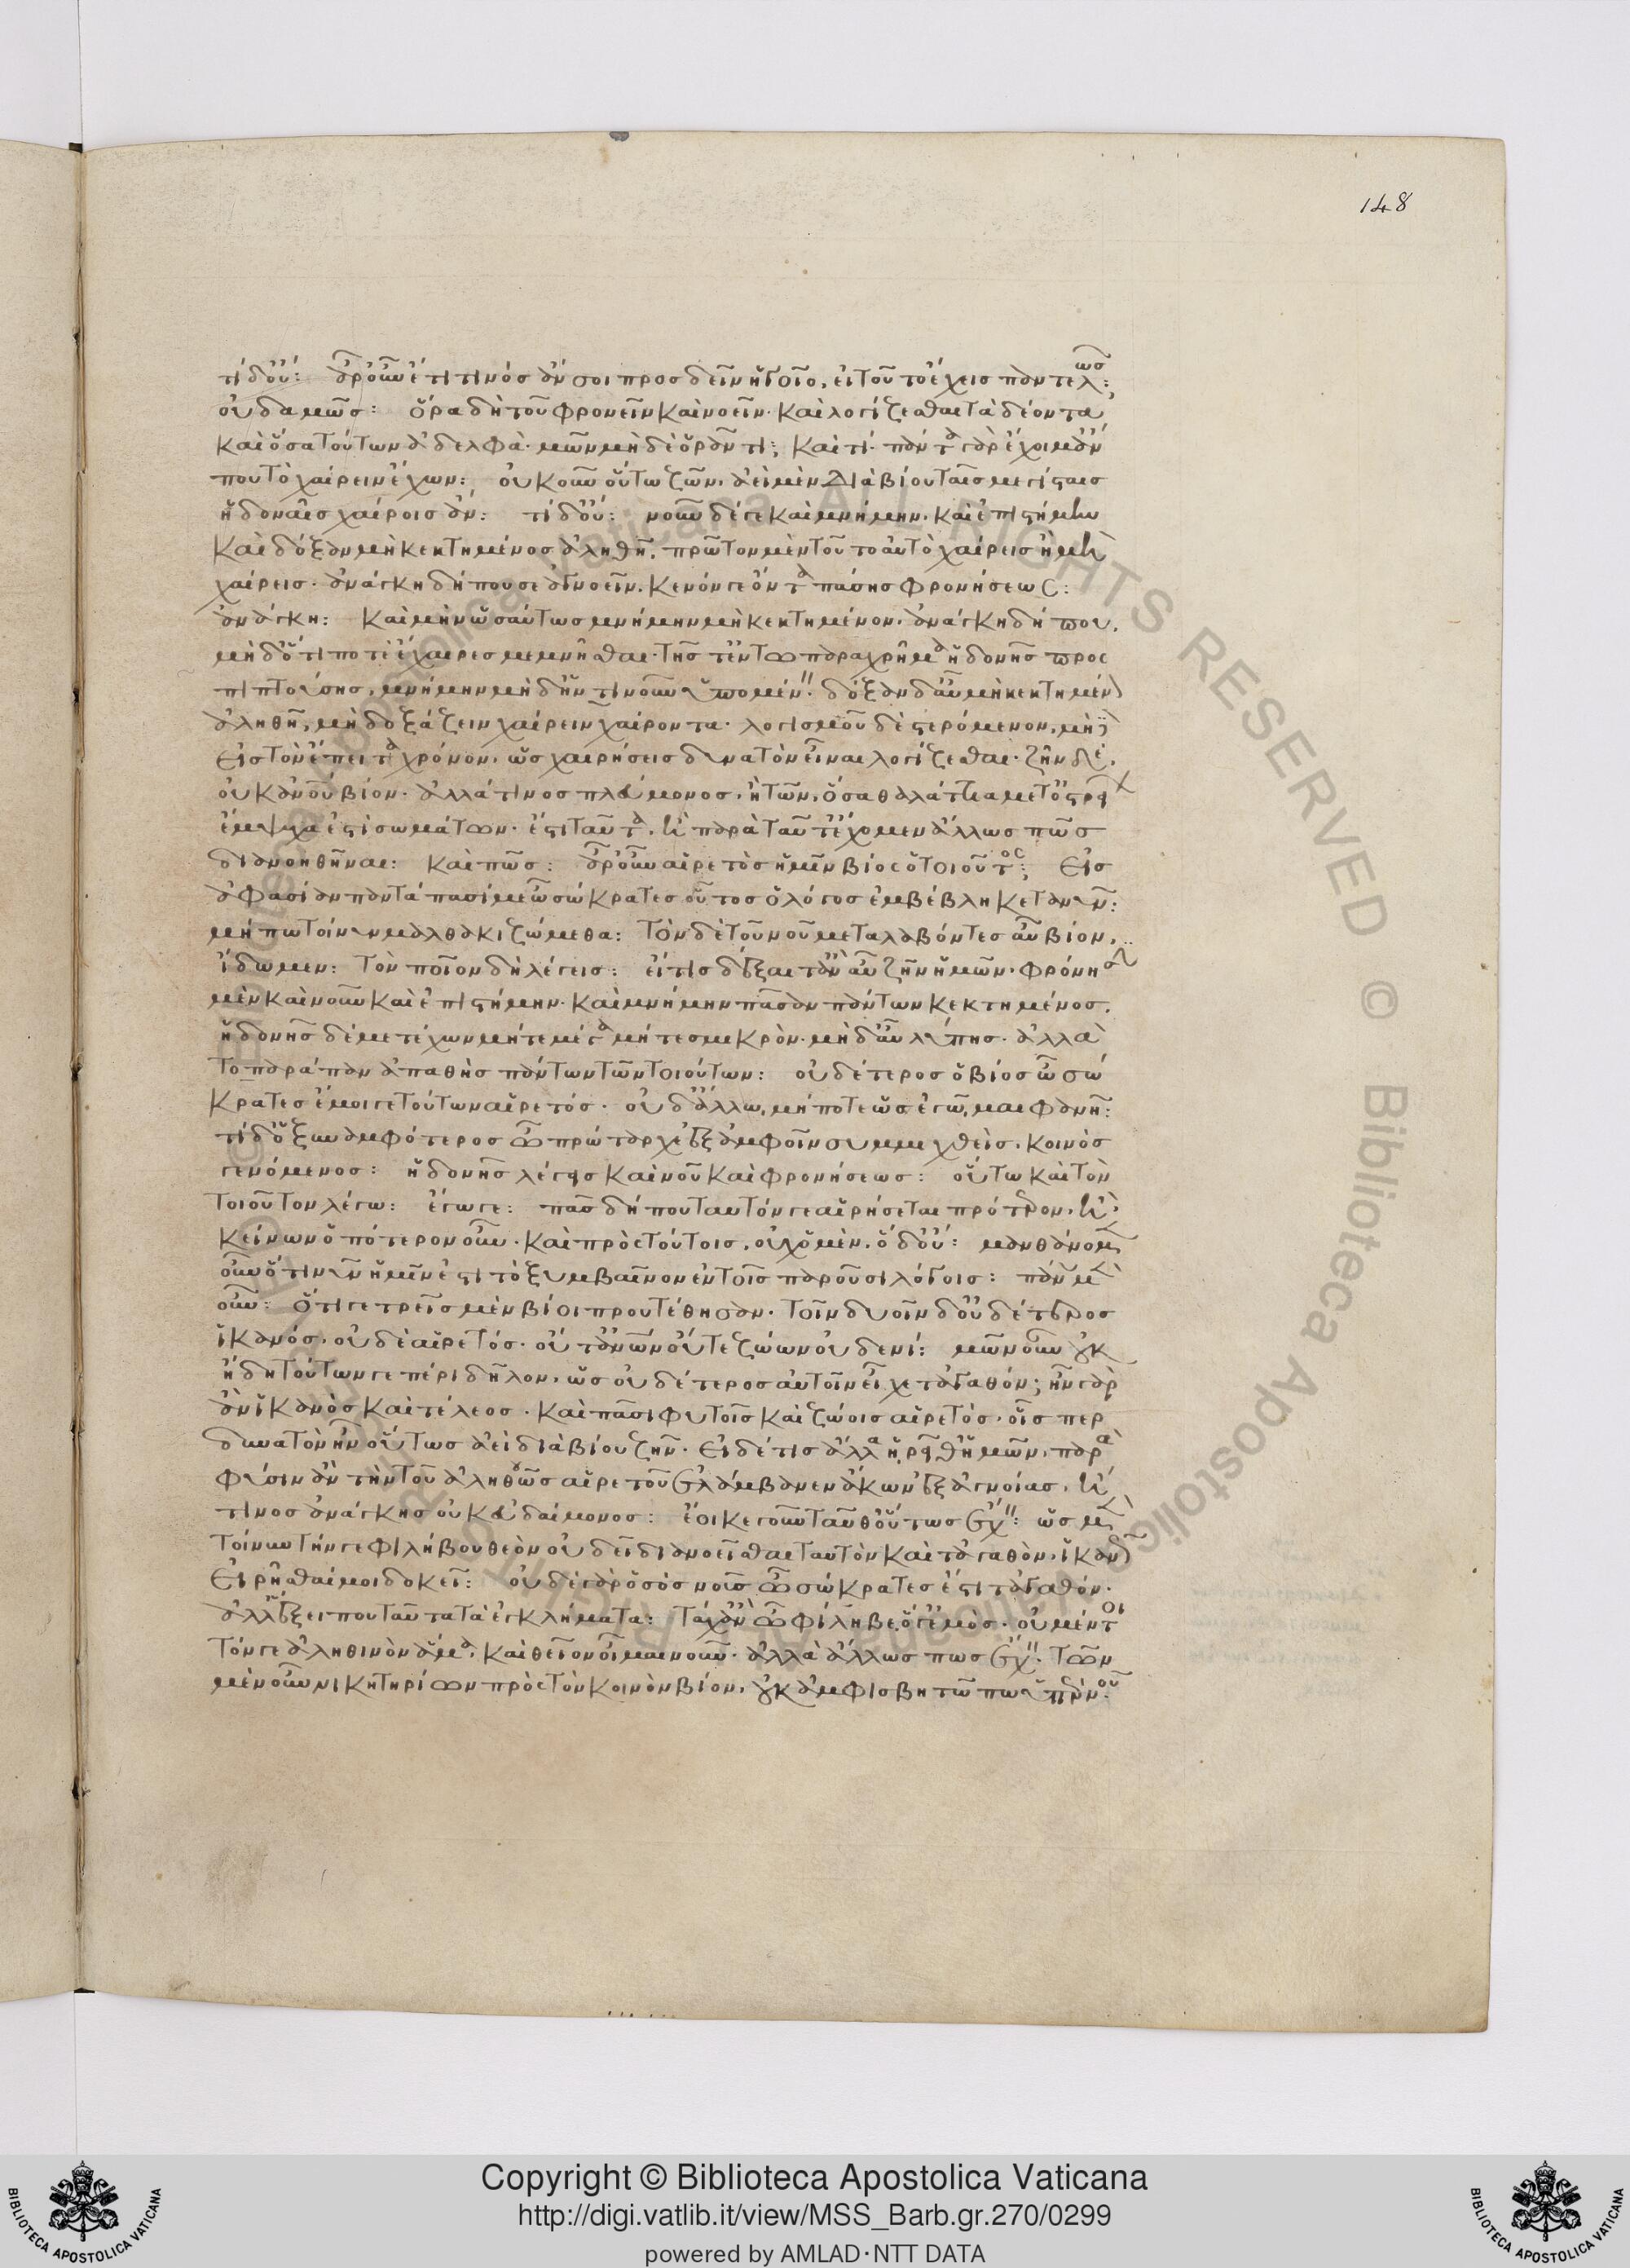 148
τί δ' οὔ: ἆρ' οὖν ἔτι τινὸς ἄν σοι προσδεῖν ἡγοῖο, εἰ τοῦτο ἔχεις παντελῶς;
οὐδαμῶς: ὅρα δὴ τοῦ φρονεῖν καὶ νοεῖν· καὶ λογίζεσθαι τὰ δέοντα
καὶ ὅσα τούτων ἀδελφὰ· μῶν μὴ δὲ ὁρᾶν τι; καὶ τί· πάντα γὰρ ἔχοιμ' ἄν
που τὸ χαίρειν ἔχων: οὐκοῦν οὕτω ζῶν, ἀεὶ μὲν διὰ βίου ταῖς μεγίσταις
ἡδοναῖς χαίροις ἄν: τί δ' οὔ: νοῦν δέ γε καὶ μνήμην, καὶ ἐπιστήμην
καὶ δόξαν μὴ κεκτημένος ἀληθῆ, πρῶτον μὲν τοῦτο αὐτὸ χαίρεις ἢ μὴ
χαίρεις· ἀνάγκη δή που σε ἀγνοεῖν, κενόν γε ὄντα πάσης φρονήσεως:
ἀνάγκη: καὶ μὴν ὡσαύτως μνήμην μὴ κεκτημένον, ἀνάγκη δή που,
μὴδ' ὅτι ποτὲ ἔχαιρες μεμνῆσθαι· τῆς τ' ἐν τῶ παραχρῆμα ἡδονῆς προσ
πιπτούσης, μνήμην μὴδ' ἥν τινοῦν ὑπομένειν· δόξαν δ' αὖ μὴ κεκτημένον
ἀληθῆ, μὴ δοξάζειν χαίρειν χαίροντα· λογισμοῦ δὲ στερόμενον, μὴδ'
εἰς τὸν ἔπειτα χρόνον, ὡς χαιρήσεις δυνατὸν εἶναι λογίζεσθαι· ζῆν δὲ,
οὐκ ἀν̅ου βίον· ἀλλά τινος πλεύμονος, ἢ τῶν, ὅσα θαλάττια μετ' ὀστρείνων
ἔμψυχά ἐστι σωμάτων· ἔστι ταῦτα, ἢ παρὰ ταῦτ' ἔχομεν ἄλλως πῶς
διανοηθῆναι: καὶ πῶς: ἆρ' οὖν αἱρετὸς ἡμῖν βίος ὁ τοιοῦτος; εἰς
ἀφασίαν παντάπασί με ὦ σώκρατες οὗτος ὁ λόγος ἐμβέβληκε τανῦν:
μήπω τοίνυν μαλθακιζώμεθα: τὸν δὲ τοῦ νοῦ μεταλαβόντες αὖ βίον,
ἴδωμεν: τὸν ποῖον δὴ λέγεις: εἴ τις δέξαιτ' ἂν αὖ ζῆν ἡμῶν, φρόνησιν
μὲν καὶ νοῦν καὶ ἐπιστήμην· καὶ μνήμην πᾶσαν πάντων κεκτημένος,
ἡδονῆς δὲ μετέχων μήτε μέγα μήτε σμικρὸν· μὴδ' αὖ λύπης· ἀλλὰ
τοπαράπαν ἀπαθὴς πάντων τῶν τοιούτων: οὐδέτερος ὁ βίος ὦ σώ
κρατες ἔμοιγε τούτων αἱρετός· οὐδ' ἄλλω, μή ποτε ὡς ἐγῶμαι φανῆ:
τί δ' ὁ ξυναμφότερος ὦ πρώταρχε ἐξ ἀμφοῖν συμμιχθεὶς, κοινὸς
γενόμενος: ἡδονῆς λέγεις καὶ νοῦ καὶ φρονήσεως: οὕτω καὶ τὸν
τοιοῦτον λέγω: ἔγωγε: πᾶς δή που ταυτόν γε αἱρήσεται πρότερον, ἢ ἐ
κείνων ὁπότερον οὖν· καὶ πρὸς τούτοις, οὐχ ὁ μὲν, ὁ δ' οὔ: μανθάνομεν
οὖν ὅτι νῦν ἡμῖν ἐστι τὸ ξυμβαῖνον ἐν τοῖς παροῦσι λόγοις: πάνυ μὲν
οὖν: ὅτι γε τρεῖς μὲν βίοι προυτέθησαν· τοῖν δυοῖν δ' οὐδέτερος
ἱκανός, οὐδὲ αἱρετός· οὔτ' ἀν̅ων οὔτε ζώων οὐδενί: μῶν οὖν οὐκ
ἤδη τούτων γε πέρι δῆλον, ὡς οὐδέτερος αὐτοῖν εἶχε τἀγαθόν; ἦν γὰρ
ἂν ἱκανὸς καὶ τέλεος· καὶ πᾶσι φυτοῖς καὶ ζώοις αἱρετός· οἷς περ
δυνατὸν ἦν οὕτως ἀεὶ διὰ βίου ζῆν· εἰ δέ τις ἄλλα ᾑρεῖθ' ἡμῶν, παρὰ
φύσιν ἂν τὴν τοῦ ἀληθῶς αἱρετοῦ ἐλάμβανεν ἄκων ἐξ ἀγνοίας, ἤ
τινος ἀνάγκης οὐκ εὐδαίμονος: ἔοικε γοῦν ταῦθ' οὕτως ἔχειν: ὡς μὲν
τοίνυν τήν γε φιλήβου θεὸν οὐ δεῖ διανοεῖσθαι ταυτὸν καὶ τἀγαθὸν, ἱκανῶς
εἰρῆσθαί μοι δοκεῖ: οὐδὲ γὰρ ὁ σὸς νοῦς ὦ σώκρατες ἔστι τἀγαθόν·
ἀλλ' ἕξει που ταῦτα τὰ ἐγκλήματα: τάχ' ἂν ὦ φίληβε ὅ γ' ἐμός· οὐ μέντοι
τόν γε ἀληθινὸν ἅμα, καὶ θεῖον οἶμαι νοῦν· ἀλλὰ ἄλλως πως ἔχειν· τῶν
μὲν οὖν νικητηρίων πρὸς τὸν κοινὸν βίον, οὐκ ἀμφισβητῶ πω ὑπὲρ νοῦ·
Copyright © Biblioteca Apostolica Vaticana
http://digi.vatlib.it/view/MSS_Barb.gr.270/0299
powered by AMLAD·NTT DATA
BIBLIOTECA APOSTOLICA VATICANA
BIBLIOTECA APOSTOLICA VATICANA